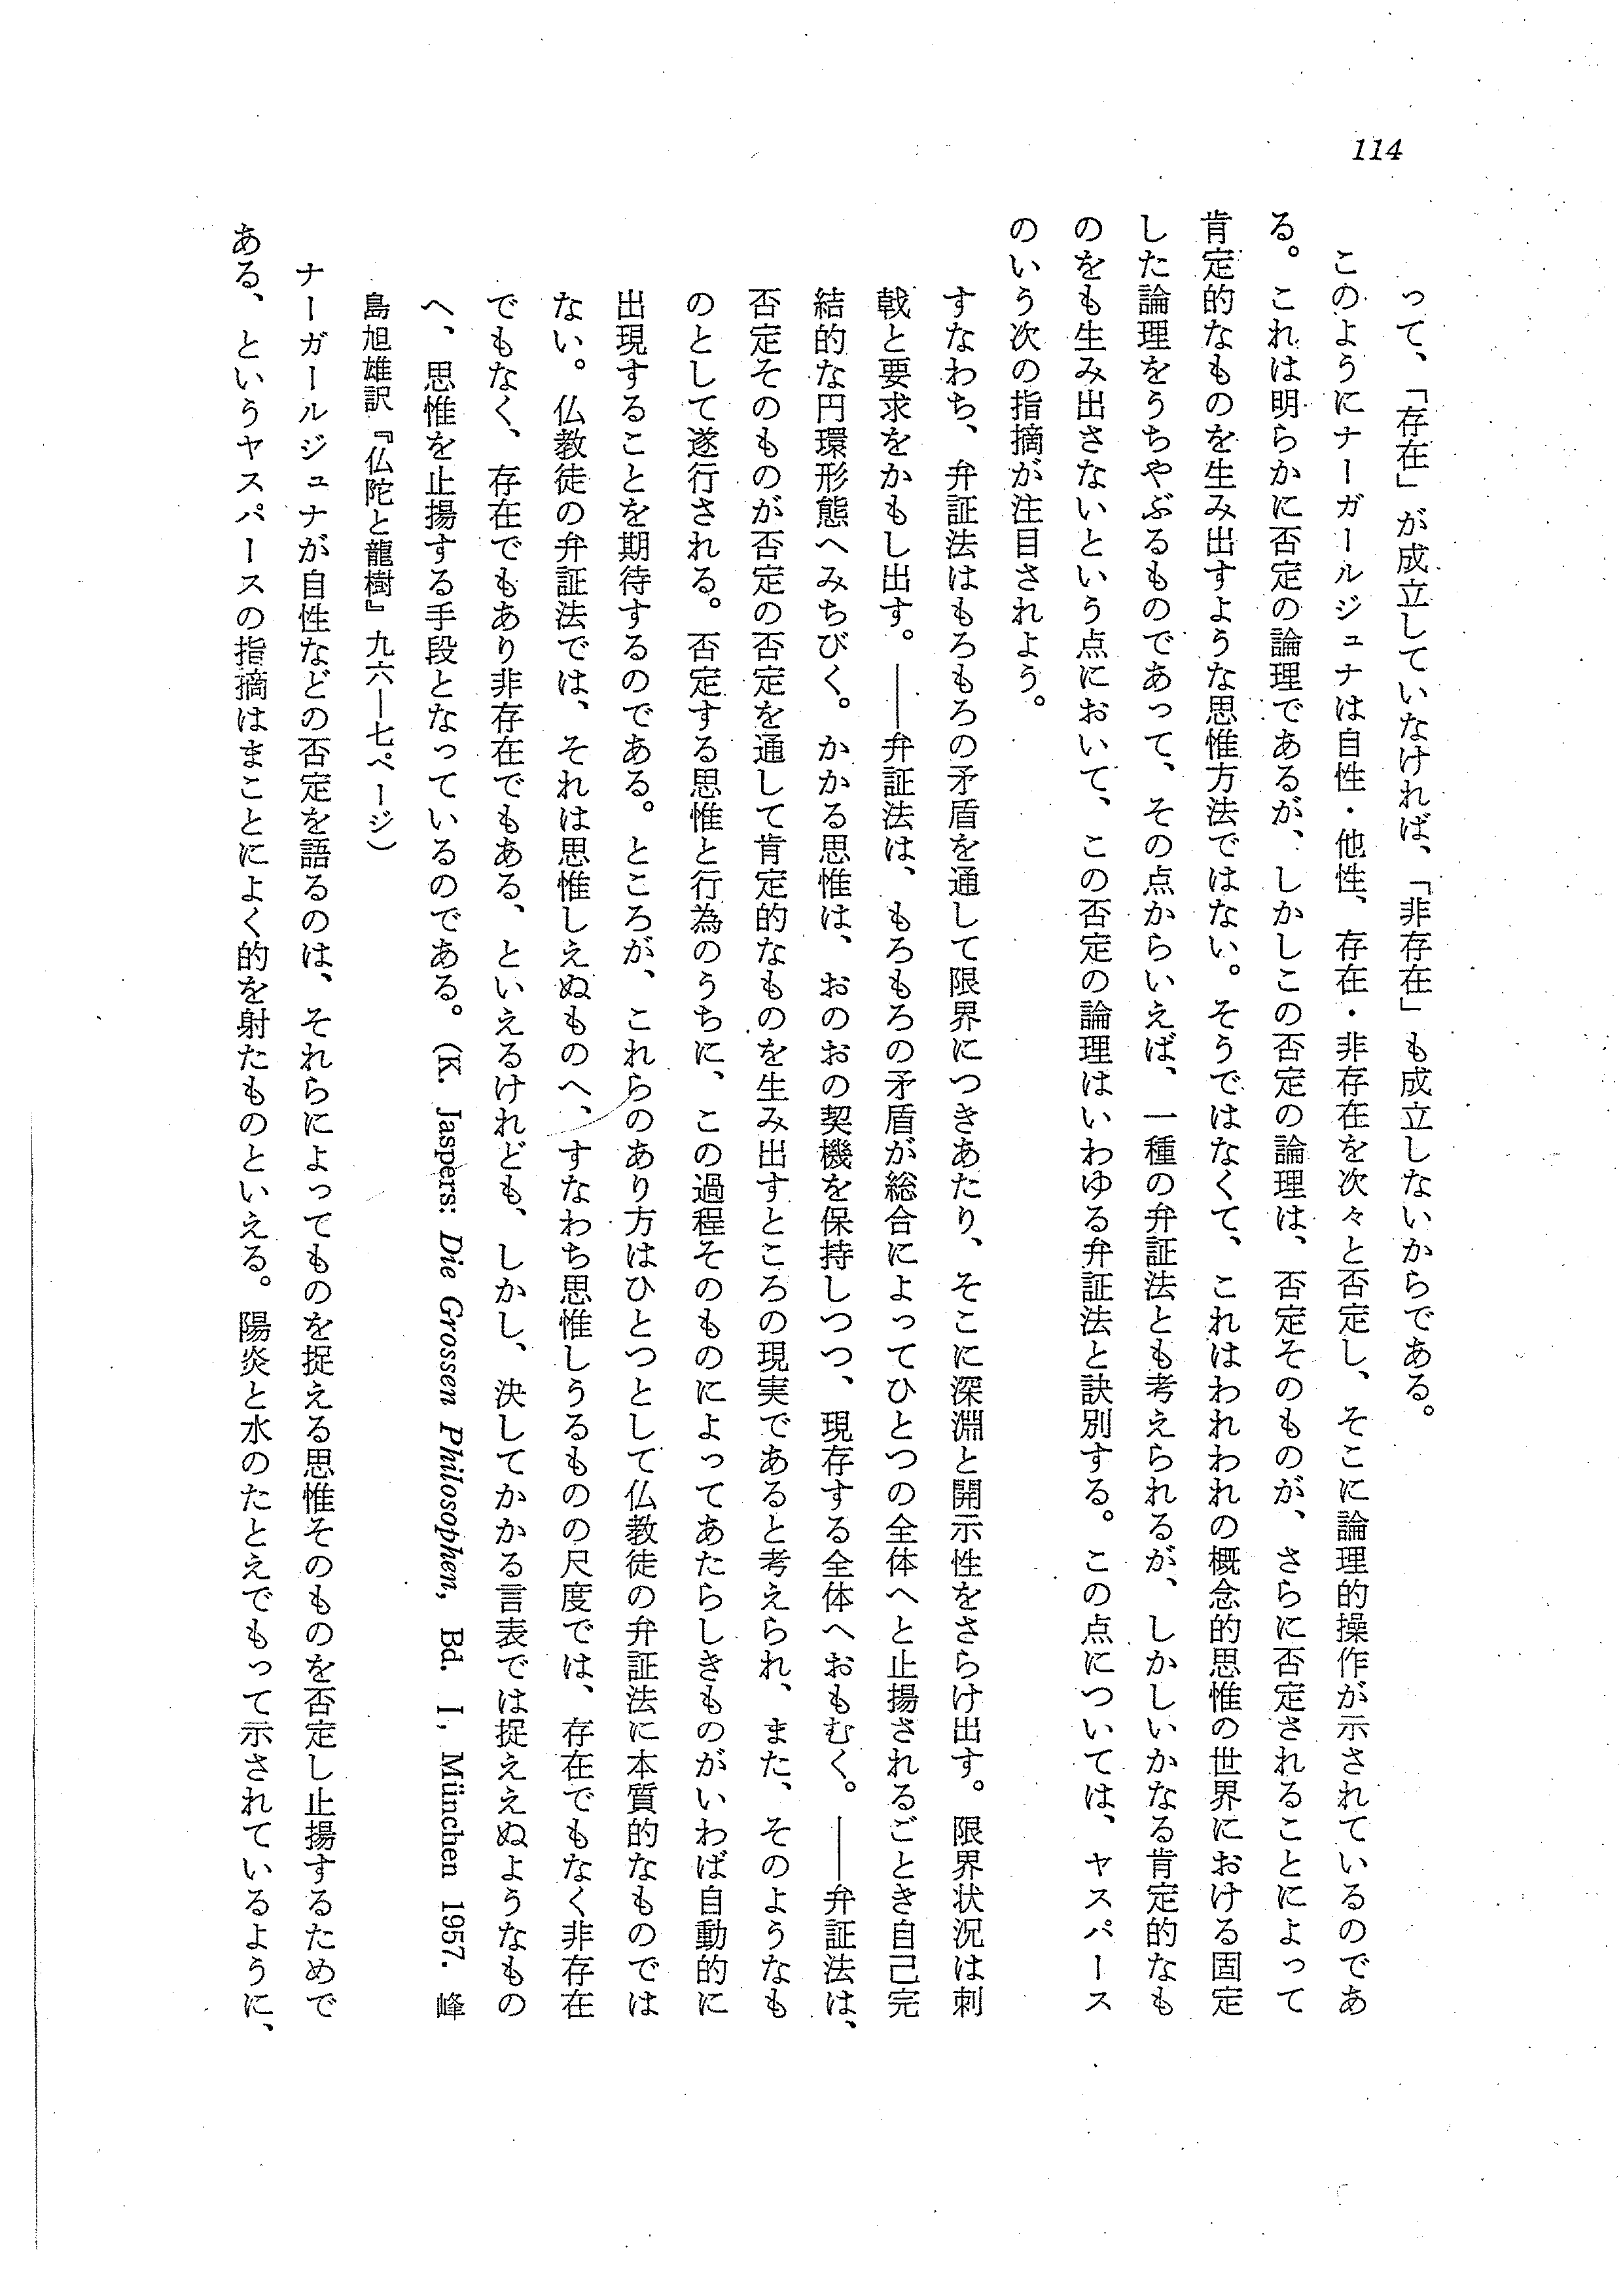 114
って、「存在」が成立していなければ、「非存在」も成立しないからである。
このようにナーガールジュナは自性・他性、存在・非存在を次々と否定し、そこに論理的操作が示されているのであ
る。これは明らかに否定の論理であるが、しかしこの否定の論理は、否定そのものが、さらに否定されることによって
肯定的なものを生み出すような思惟方法ではない。そうではなくて、これはわれわれの概念的思惟の世界における固定
した論理をうちやぶるものであって、その点からいえば、一種の弁証法とも考えられるが、しかしいかなる肯定的なも
のをも生み出さないという点において、この否定の論理はいわゆる弁証法と訣別する。この点については、ヤスパース
のいう次の指摘が注目されよう。
すなわち、弁証法はもろもろの矛盾を通して限界につきあたり、そこに深淵と開示性をさらけ出す。限界状況は刺
戟と要求をかもし出す。――弁証法は、もろもろの矛盾が総合によってひとつの全体へと止揚されるごとき自己完
結的な円環形態へみちびく。かかる思惟は、おのおの契機を保持しつつ、現存する全体へおもむく。――弁証法は、
否定そのものが否定の否定を通して肯定的なものを生み出すところの現実であると考えられ、また、そのようなも
のとして遂行される。否定する思惟と行為のうちに、この過程そのものによってあたらしきものがいわば自動的に
出現することを期待するのである。ところが、これらのあり方はひとつとして仏教徒の弁証法に本質的なものでは
ない。仏教徒の弁証法では、それは思惟しえぬものへ、すなわち思惟しうるものの尺度では、存在でもなく非存在
でもなく、存在でもあり非存在でもある、といえるけれども、しかし、決してかかる言表では捉ええぬようなもの
へ、思惟を止揚する手段となっているのである。(K. Jaspers: Die Grossen Philosophen, Bd. I, München 1957. 峰
島旭雄訳『仏陀と龍樹』九六―七ページ）
ナーガールジュナが自性などの否定を語るのは、それらによってものを捉える思惟そのものを否定し止揚するためで
ある、というヤスパースの指摘はまことによく的を射たものといえる。陽炎と水のたとえでもって示されているように、